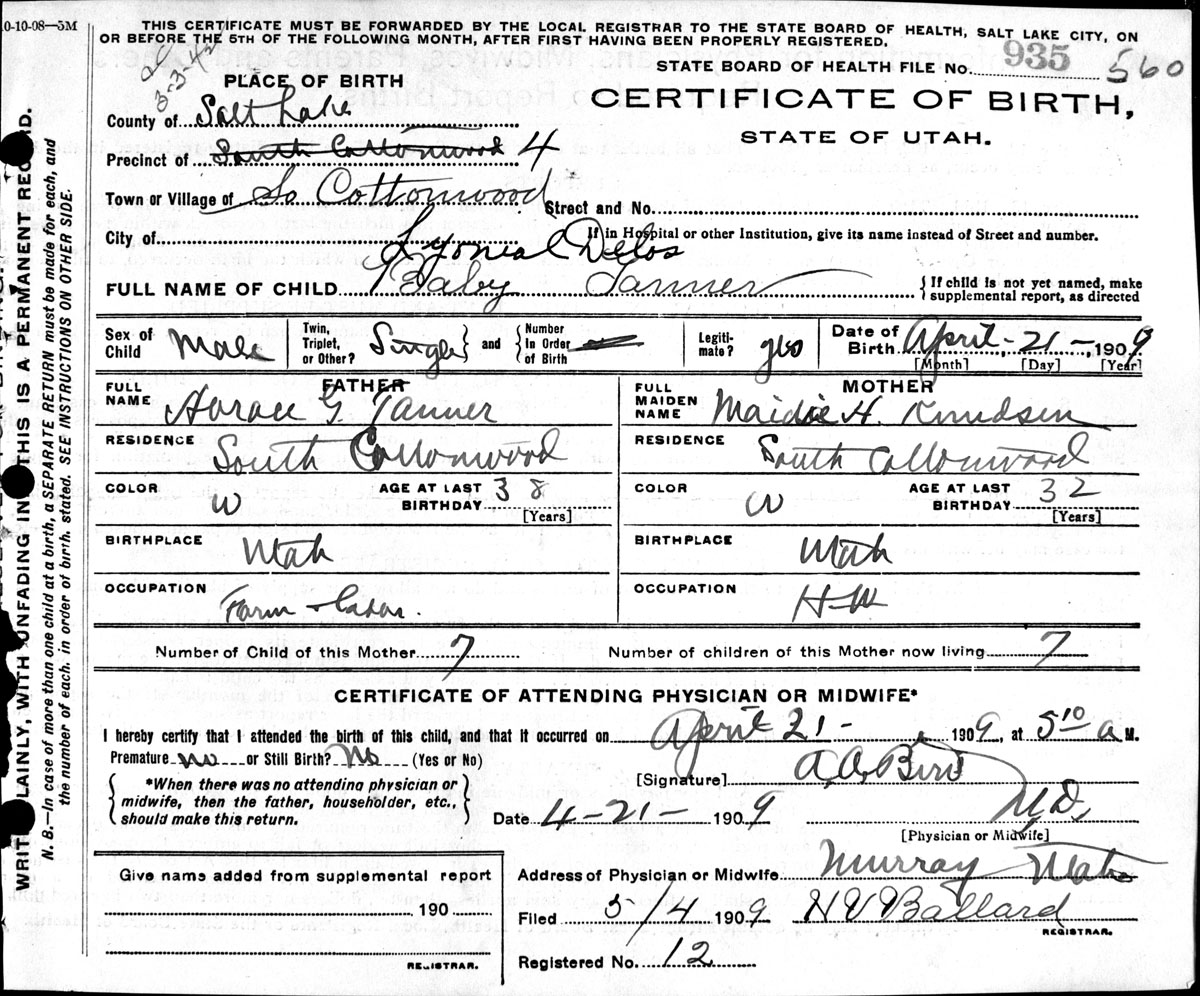 0-10-08—5M
THIS CERTIFICATE MUST BE FORWARDED BY THE LOCAL REGISTRAR TO THE STATE BOARD OF HEALTH, SALT LAKE CITY, ON
OR BEFORE THE 5TH OF THE FOLLOWING MONTH, AFTER FIRST HAVING BEEN PROPERLY REGISTERED.
3-3-42
STATE BOARD OF HEALTH FILE No. 935 560
PLACE OF BIRTH
CERTIFICATE OF BIRTH,
STATE OF UTAH.
County of Salt Lake
Precinct of South Cottonwood 4
Town or Village of So Cottonwood
Street and No.
City of
If in Hospital or other Institution, give its name instead of Street and number.
Delos
FULL NAME OF CHILD Baby Tanner
{ If child is not yet named, make
supplemental report, as directed
Sex of Child Male
Twin, Triplet, or Other? Single } and { Number In Order of Birth
Legitimate? yes
Date of Birth April - 21 -, 1909
[Month] [Day] [Year]
FATHER
FULL NAME Horace G. Tanner
RESIDENCE South Cottonwood
COLOR W
AGE AT LAST BIRTHDAY 38
[Years]
BIRTHPLACE Utah
OCCUPATION Farm + Labor.
MOTHER
FULL MAIDEN NAME Maidie H. Knudsen
RESIDENCE South Cottonwood
COLOR W
AGE AT LAST BIRTHDAY 32
[Years]
BIRTHPLACE Utah
OCCUPATION H-W
Number of Child of this Mother 7
Number of children of this Mother now living 7
CERTIFICATE OF ATTENDING PHYSICIAN OR MIDWIFE*
I hereby certify that I attended the birth of this child, and that it occurred on April 21 - 1909, at 5 10 a M.
Premature no or Still Birth? No (Yes or No)
{ *When there was no attending physician or
midwife, then the father, householder, etc.,
should make this return. }
[Signature] A.A. Bird
M.D.
Date 4-21- 1909
[Physician or Midwife]
Give name added from supplemental report
, 190
REGISTRAR.
Address of Physician or Midwife Murray Utah
Filed 5/4 1909 H V Ballard
REGISTRAR.
Registered No. 12
WRITE PLAINLY, WITH UNFADING INK THIS IS A PERMANENT RECORD.
N. B.—In case of more than one child at a birth, a SEPARATE RETURN must be made for each, and
the number of each, in order of birth, stated. SEE INSTRUCTIONS ON OTHER SIDE.